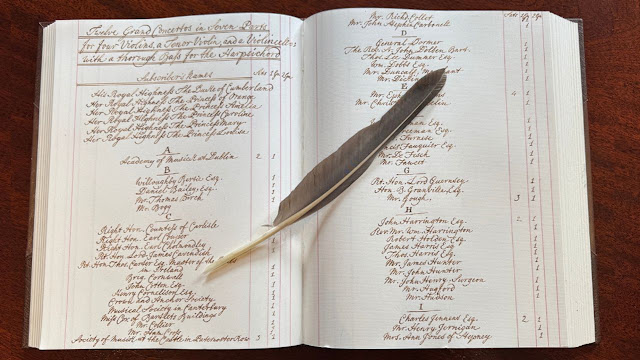 Twelve Grand Concertos in Seven Parts
for four Violins, a Tenor Violin, and a Violoncello
with a thorough Bass for the Harpsichord
Subscriber's Names
His Royal Highness The Duke of Cumberland
Her Royal Highness The Princess of Orange
Her Royal Highness The Princess Amelia
Her Royal Highness The Princess Caroline
Her Royal Highness The Princess Mary
Her Royal Highness The Princess Louisa
A
Academy of Musick at Dublin 2 1
B
Willoughby Bertie Esq. 1
Daniel Bailey Esq. 1
Mr. Thomas Birch 1
Mr. Bogg 1
C
Right Hon. Countess of Carlisle 1
Right Hon. Earl Cowper 1
Right Hon. Earl Cholmondley
Rt. Hon. Lord James Cavendish
Rt. Hon. Thos. Carter Esq. Master of the
in Ireland
Brig. Cornwall 1
John Cotton Esq. 1
Henry Cornelison Esq. 1
Crown and Anchor Society 1
Musical Society in Canterbury 1
Miss Cox of Bartlets Buildings 1
Mr. Collier 1
Mr. Ann Cross 1
Society of Musick at the Castle in Paternoster Row 3
Mr. Richd. Follot
Mr. John Hepkin Carbonell
D
General Dormer
The Rev. S. John Dollen Bart.
Thos. Lee Dummer Esq.
Wm. Dobbs Esq.
Mr. Duncalf,
E 4
Esq.
Mr. De Fesch
Mr. Fawcet
G
Rt. Hon. Lord Guernsey
Hon. B. Granville Esq.
Mr. Gough 3
H
John Harrington Esq.
Rev. Mr. Wm. Harrington
Robert Holden Esq.
James Harris Esq.
Thos. Harris Esq.
Mr. James Hunter
Mr. John Hunter
Mr. John Henry, Surgeon
Mr. Hugford
Mr. Hudson
I
Charles Jennens Esq. 2
Mr. Henry Jernigan
Mrs. Ann Jones of